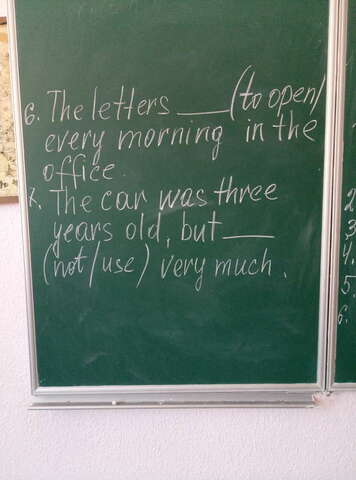 6. The letters ___ (to open)
every morning in the
office.
X. The car was three
years old, but ___
(not/use) very much.
2
3
4.
5.
6.